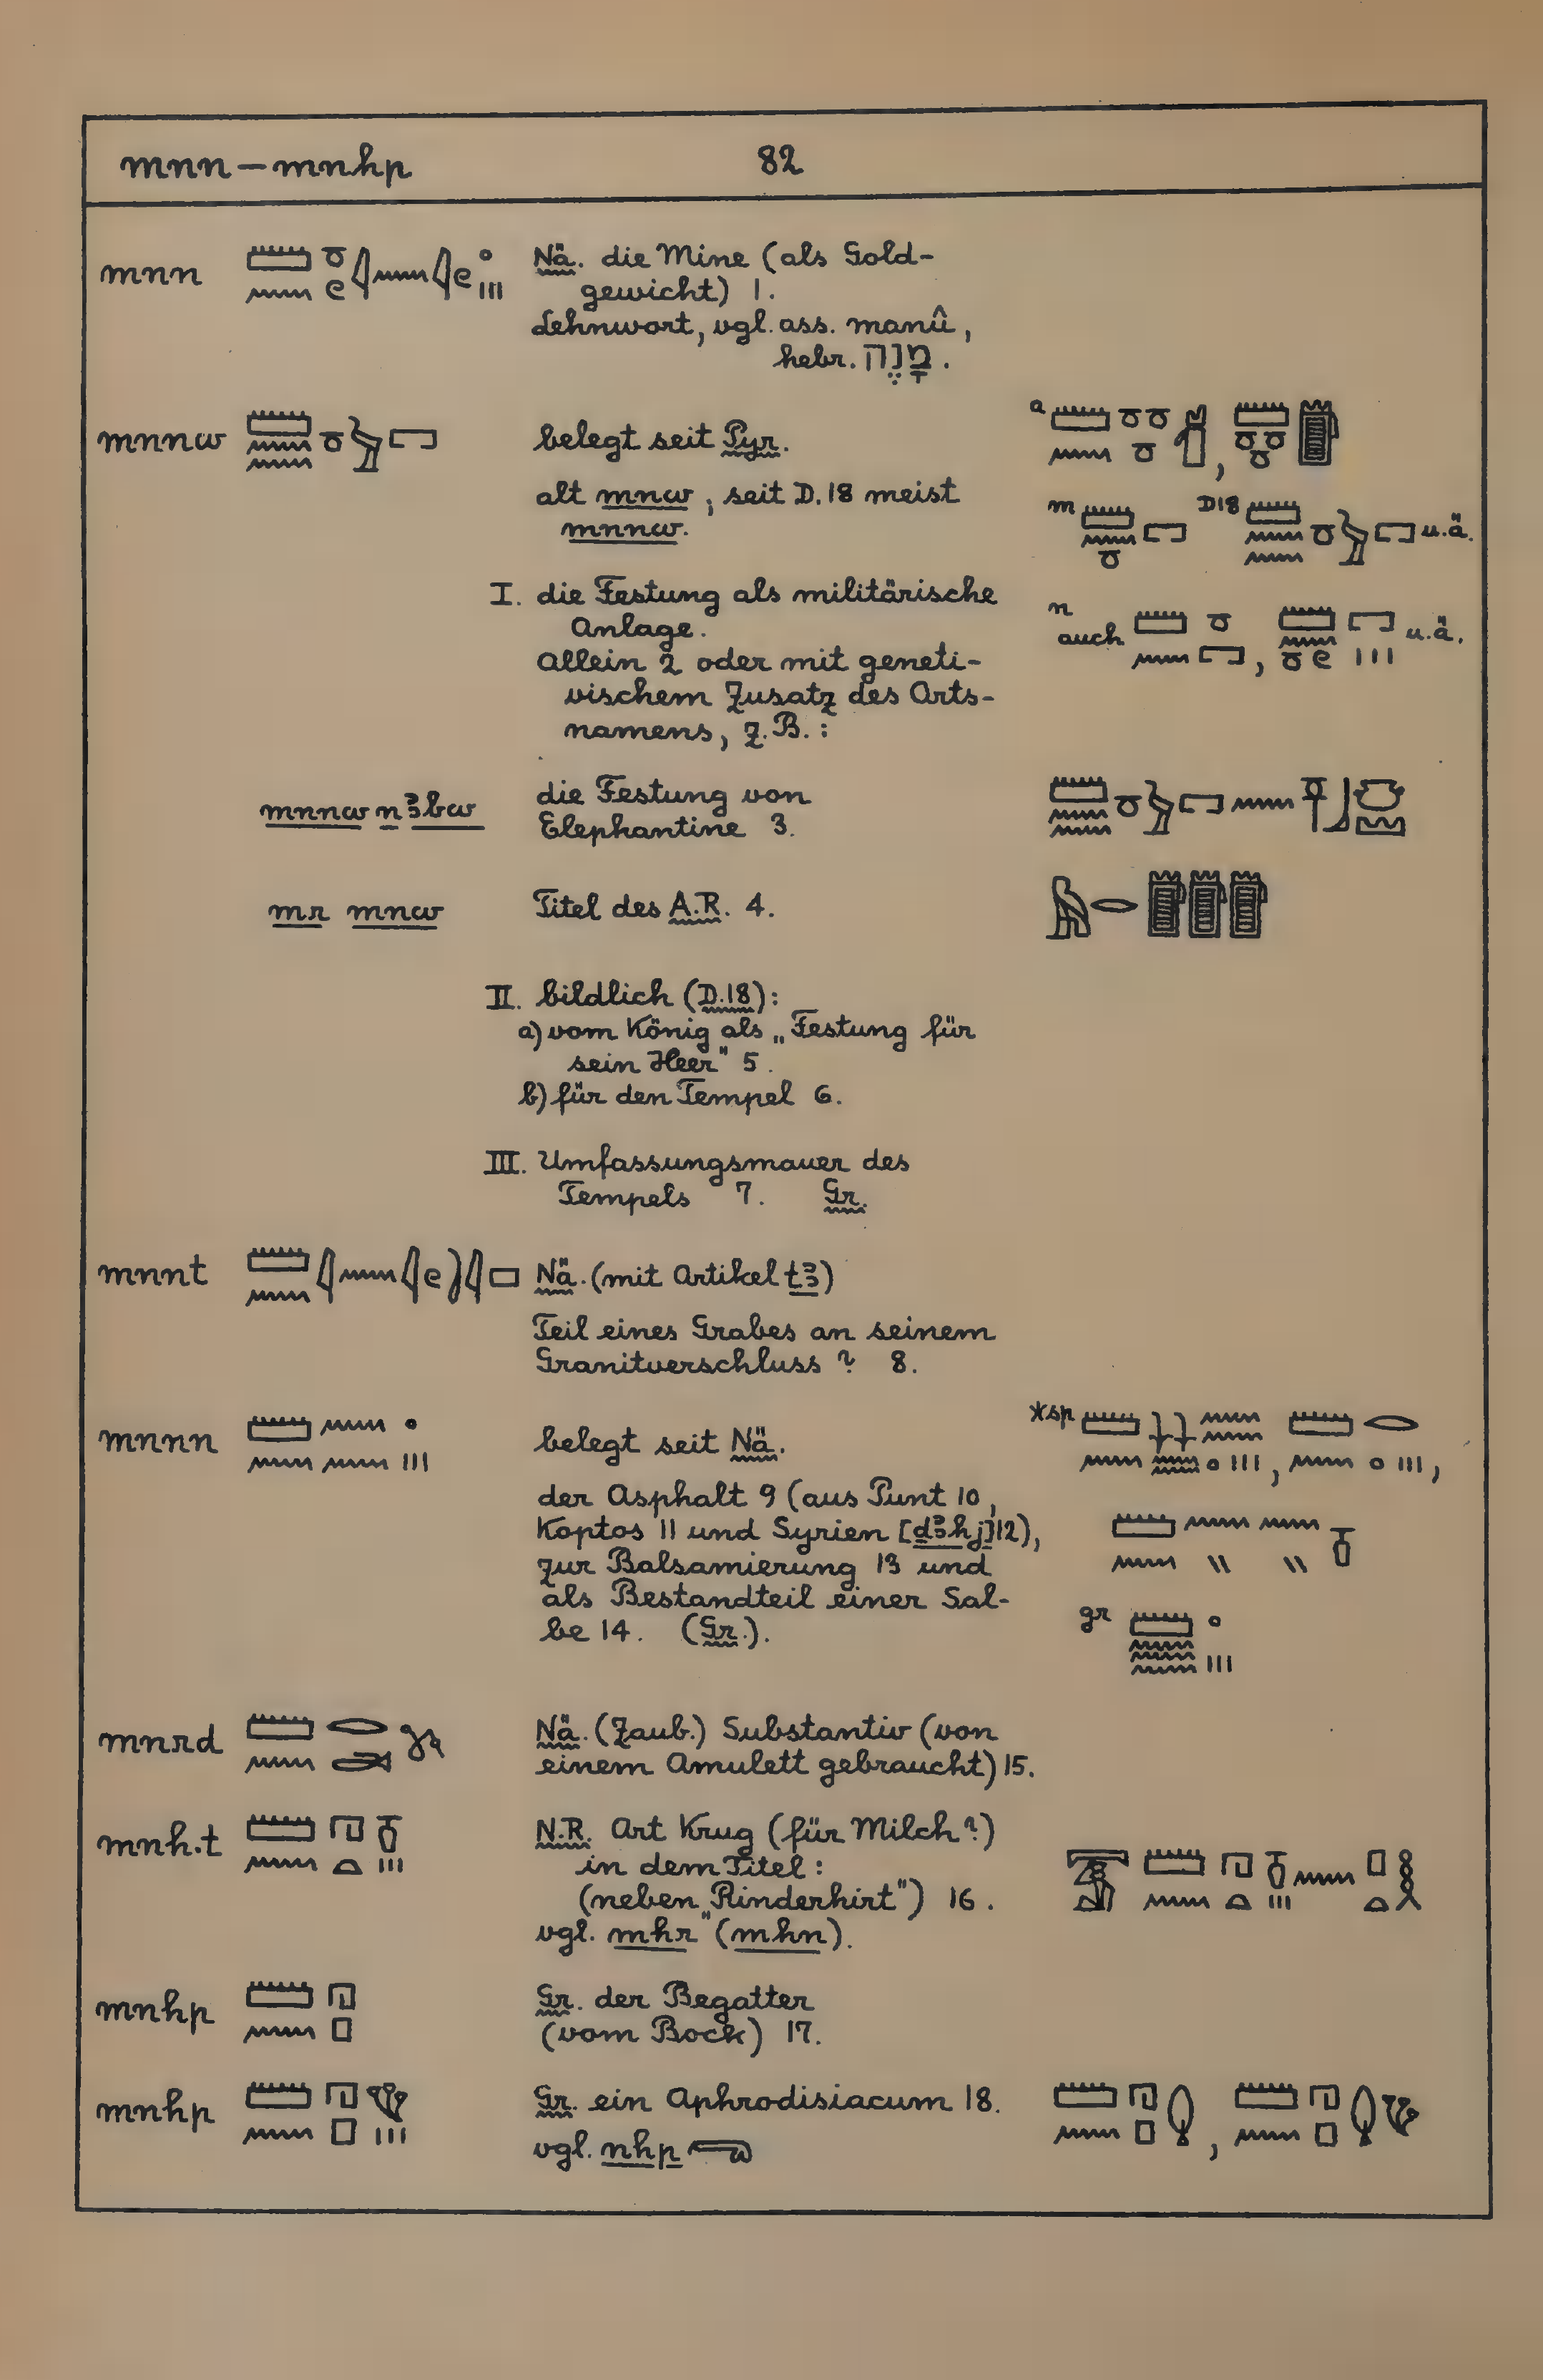 mnn – mnhp 82
mnn Nä. die Mine (als Gold-
gewicht) 1.
Lehnwort, vgl. ass. manû,
hebr. מָנֶה.
mnnw belegt seit Pyr.
alt mnw, seit D.18 meist
mnnw.
a
m D18 u.ä.
n
auch u.ä.
I. die Festung als militärische
Anlage.
Allein 2 oder mit geneti-
vischem Zusatz des Orts-
namens, z.B.:
mnnw n ꜣbw die Festung von
Elephantine 3.
mr mnw Titel des A.R. 4.
II. bildlich (D.18):
a) vom König als „Festung für
sein Heer" 5.
b) für den Tempel 6.
III. Umfassungsmauer des
Tempels 7. Gr.
mnnt Nä. (mit Artikel tꜣ)
Teil eines Grabes an seinem
Granitverschluss ? 8.
mnnn belegt seit Nä.
*sp
der Asphalt 9 (aus Punt 10,
Koptos 11 und Syrien [dꜣhj] 12),
zur Balsamierung 13 und
als Bestandteil einer Sal-
be 14. (Gr.).
gr
mnrd Nä. (Zaub.) Substantiv (von
einem Amulett gebraucht) 15.
mnh.t N.R. Art Krug (für Milch?)
in dem Titel:
(neben „Rinderhirt") 16.
vgl. mhr (mhn).
mnhp Gr. der Begatter
(vom Bock) 17.
mnhp Gr. ein Aphrodisiacum 18.
vgl. nhp